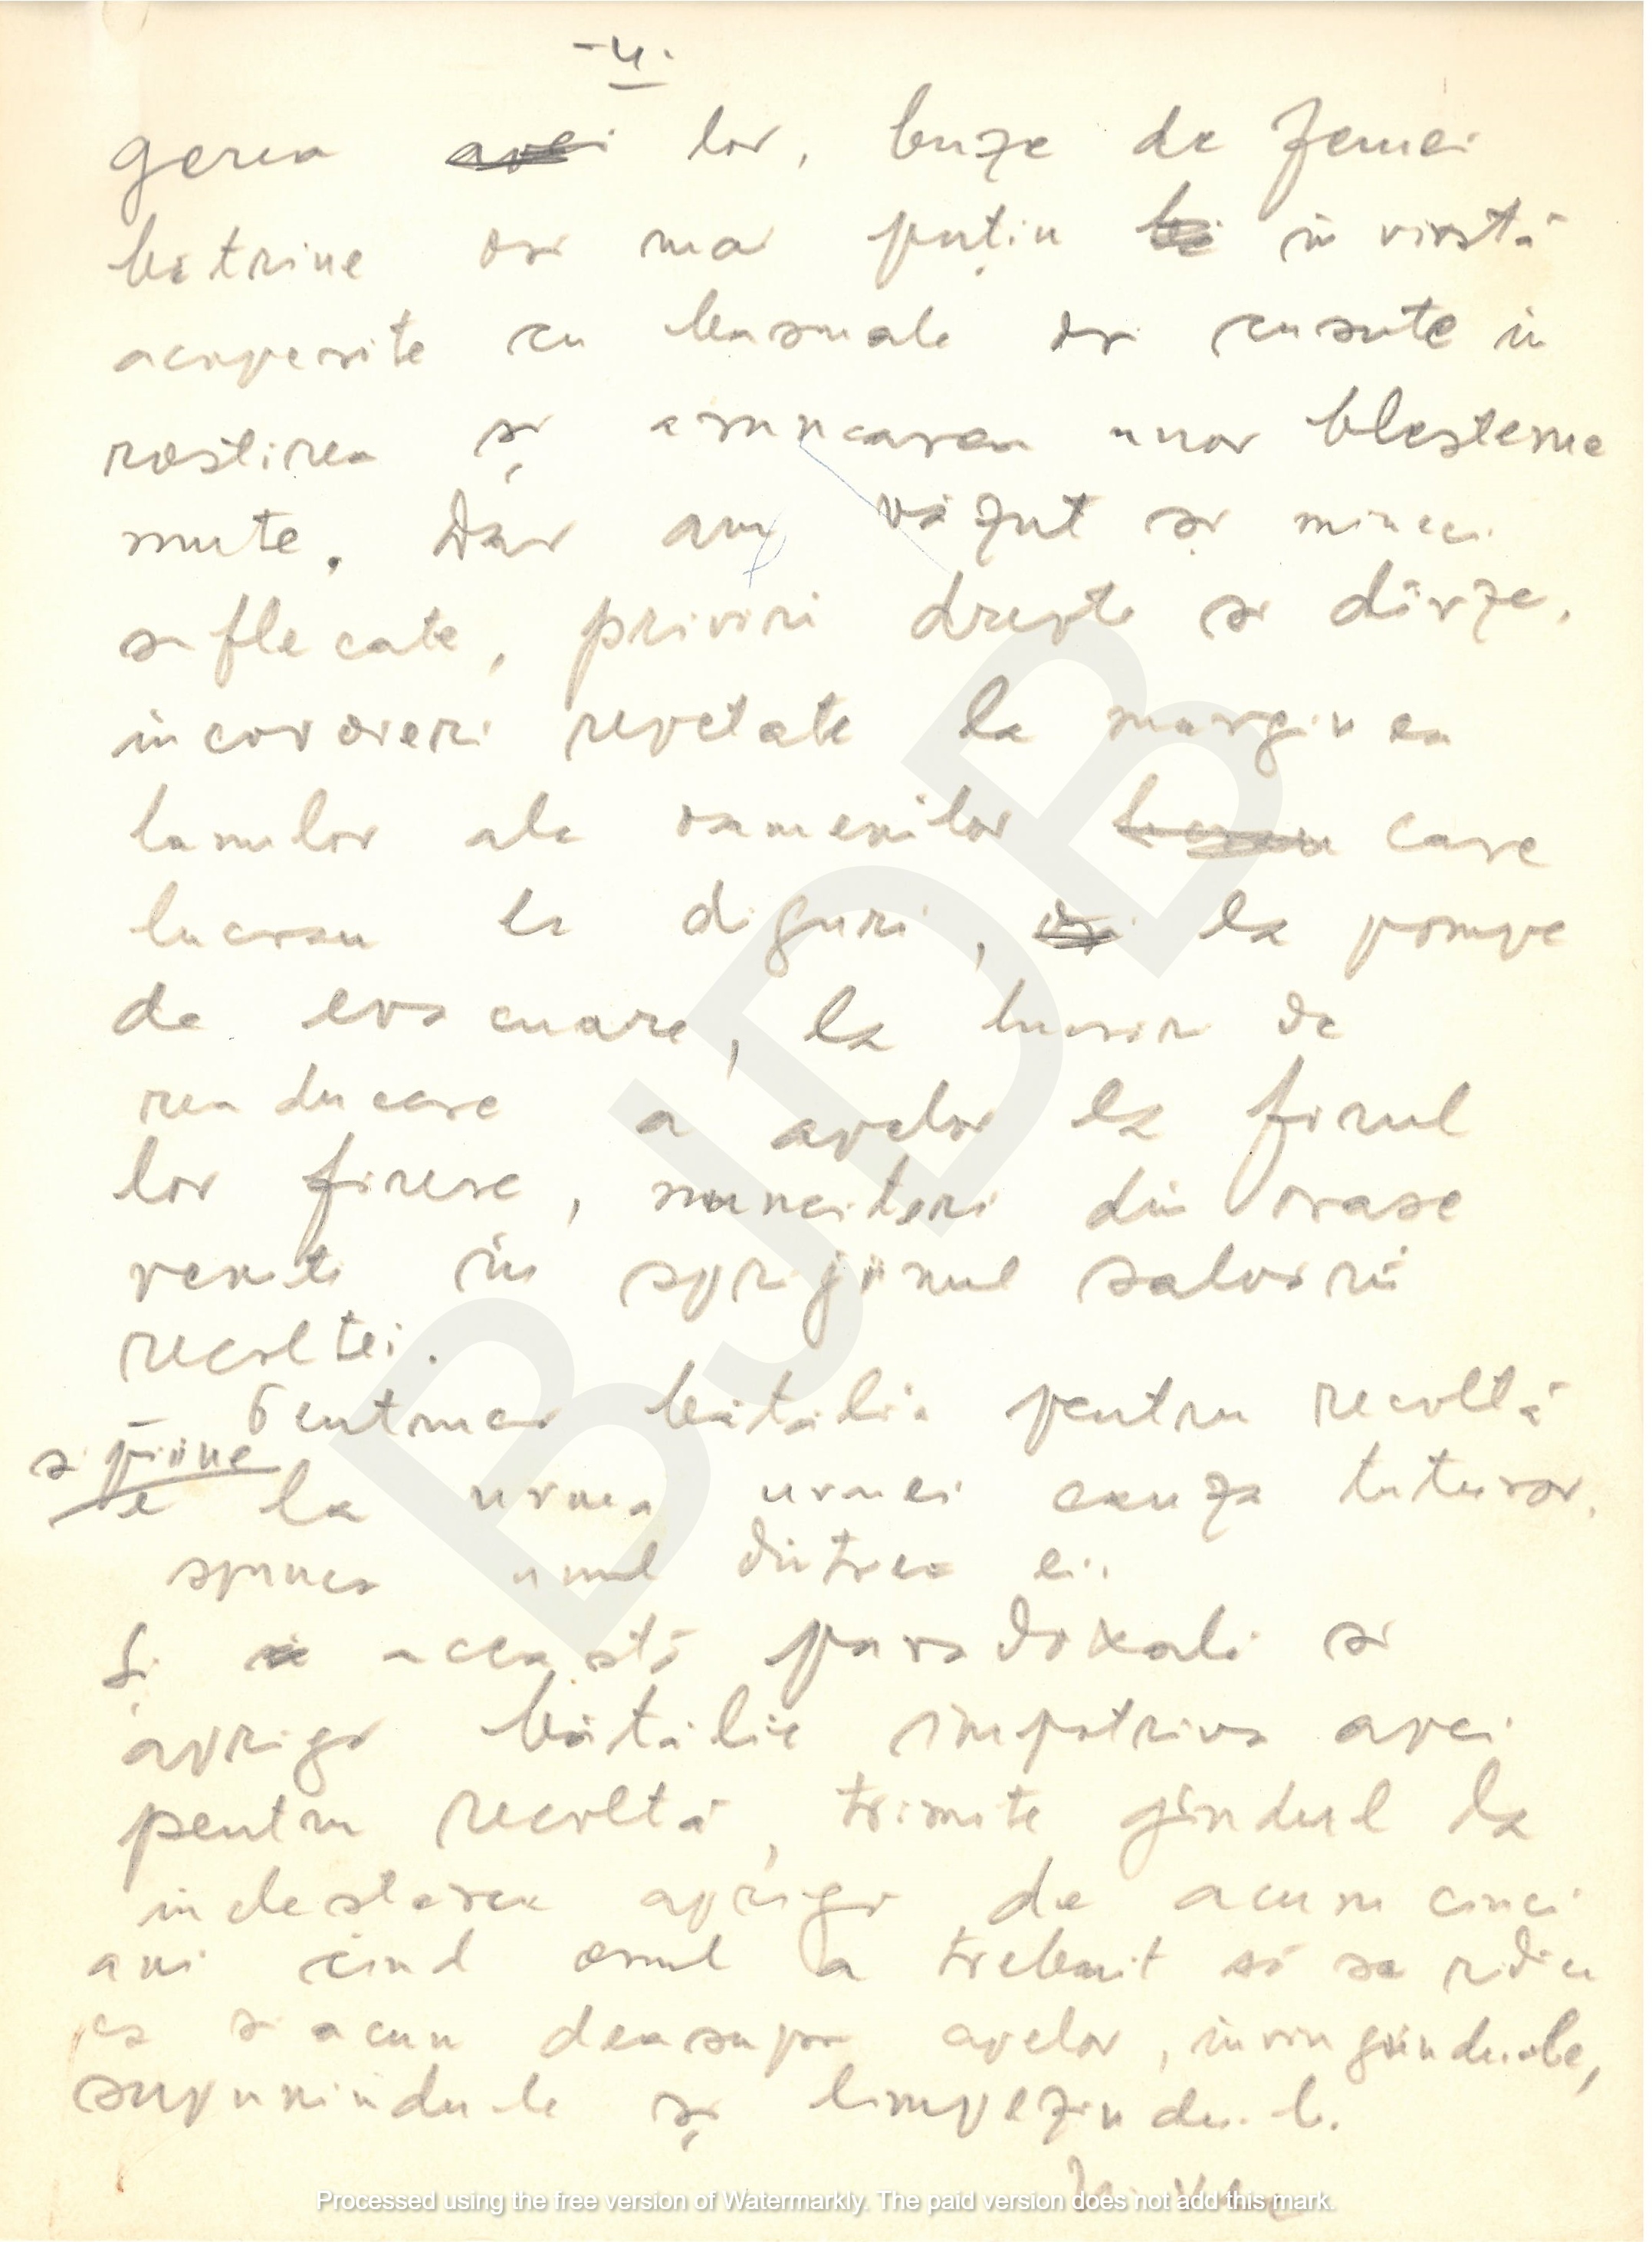 - 4 -
gerea ~~apei~~ lor, buze de femei
bătrîne ori mai puțin în vîrstă
acoperite cu basmale ori cusute în
rostirea și aruncarea unor blesteme
mute. Dar am văzut și mîneci
suflecate, priviri drepte și dîrze,
încovoieri repetate la marginea
lanulor ale oamenilor ~~lucrau~~ care
lucrau la diguri, ~~ori~~ la pompe
de evacuare, la lucrări de
readucere a apelor la firul
lor firesc, muncitori din orașe
veniți în sprijinul salvării
recoltei.
- Pentrucă bătălia pentru recoltă
și pîine
e la urma urmei cauza tuturor,
spunea unul dintre ei.
Și această paradoxală și
aprigă bătălie împotriva apei
pentru recoltă, trimite gîndul la
încleștarea aprigă de acum cinci
ani cînd omul a trebuit să se ridice
ca și acum deasupra apelor, învingîndu-le,
supunîndu-le și limpezindu-le.
BJDB
Processed using the free version of Watermarkly. The paid version does not add this mark.